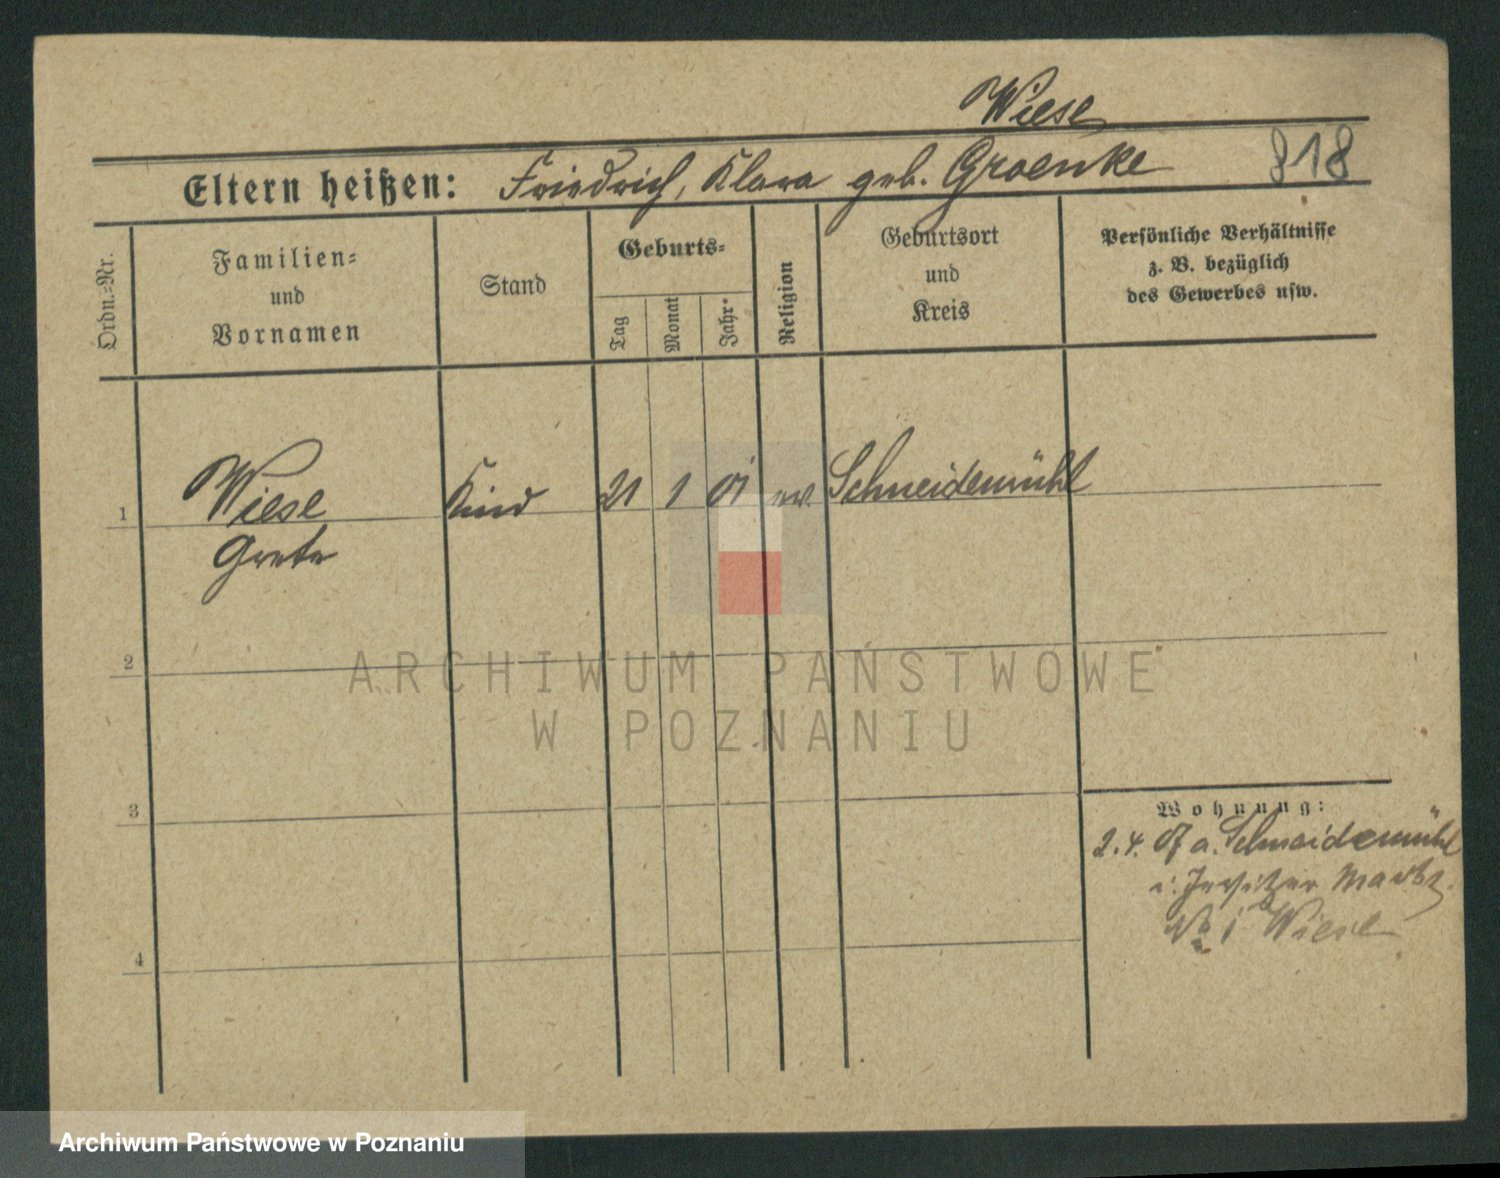 Wiese
818
Eltern heißen: Friedrich, Klara geb. Groenke
Ordn.=Nr.
Familien=
und
Vornamen
Stand
Geburts=
Tag
Monat
Jahr
Religion
Geburtsort
und
Kreis
Persönliche Verhältnisse
z. B. bezüglich
des Gewerbes usw.
1 Wiese Kind 21 1 01 ev. Schneidemühl
Grete
2
3
4
Wohnung:
2.4. 07 a. Schneidemühl
i. Jersitzer Marktz.
No 1 Wiese
ARCHIWUM PAŃSTWOWE
W POZNANIU
Archiwum Państwowe w Poznaniu